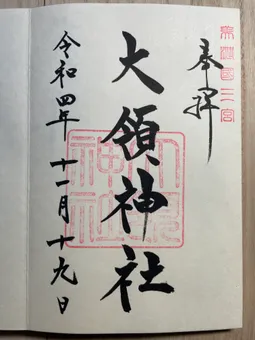 美濃国二宮
奉拝
大領神社
大領神社
令和四年十一月十九日